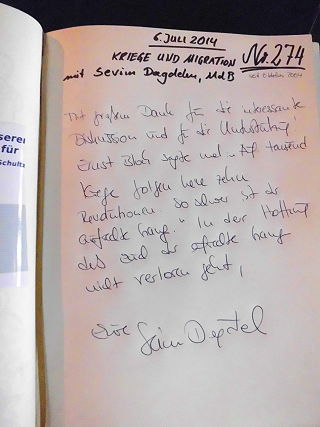 6. JULI 2014
KRIEGE UND MIGRATION Nr. 274
mit Sevim Dagdelen, MdB seit Oktober 2004
seren
für
Schultz
Mit großem Dank für die interessante
Diskussion und für die Unterstützung!
Ernst Bloch sagte mal „Auf tausend
Kriege folgen keine zehn
Revolutionen. So schwer ist der
aufrechte Gang." In der Hoffnung
daß auch der aufrechte Gang
nicht verloren geht,
Eure Sevim Dagdelen